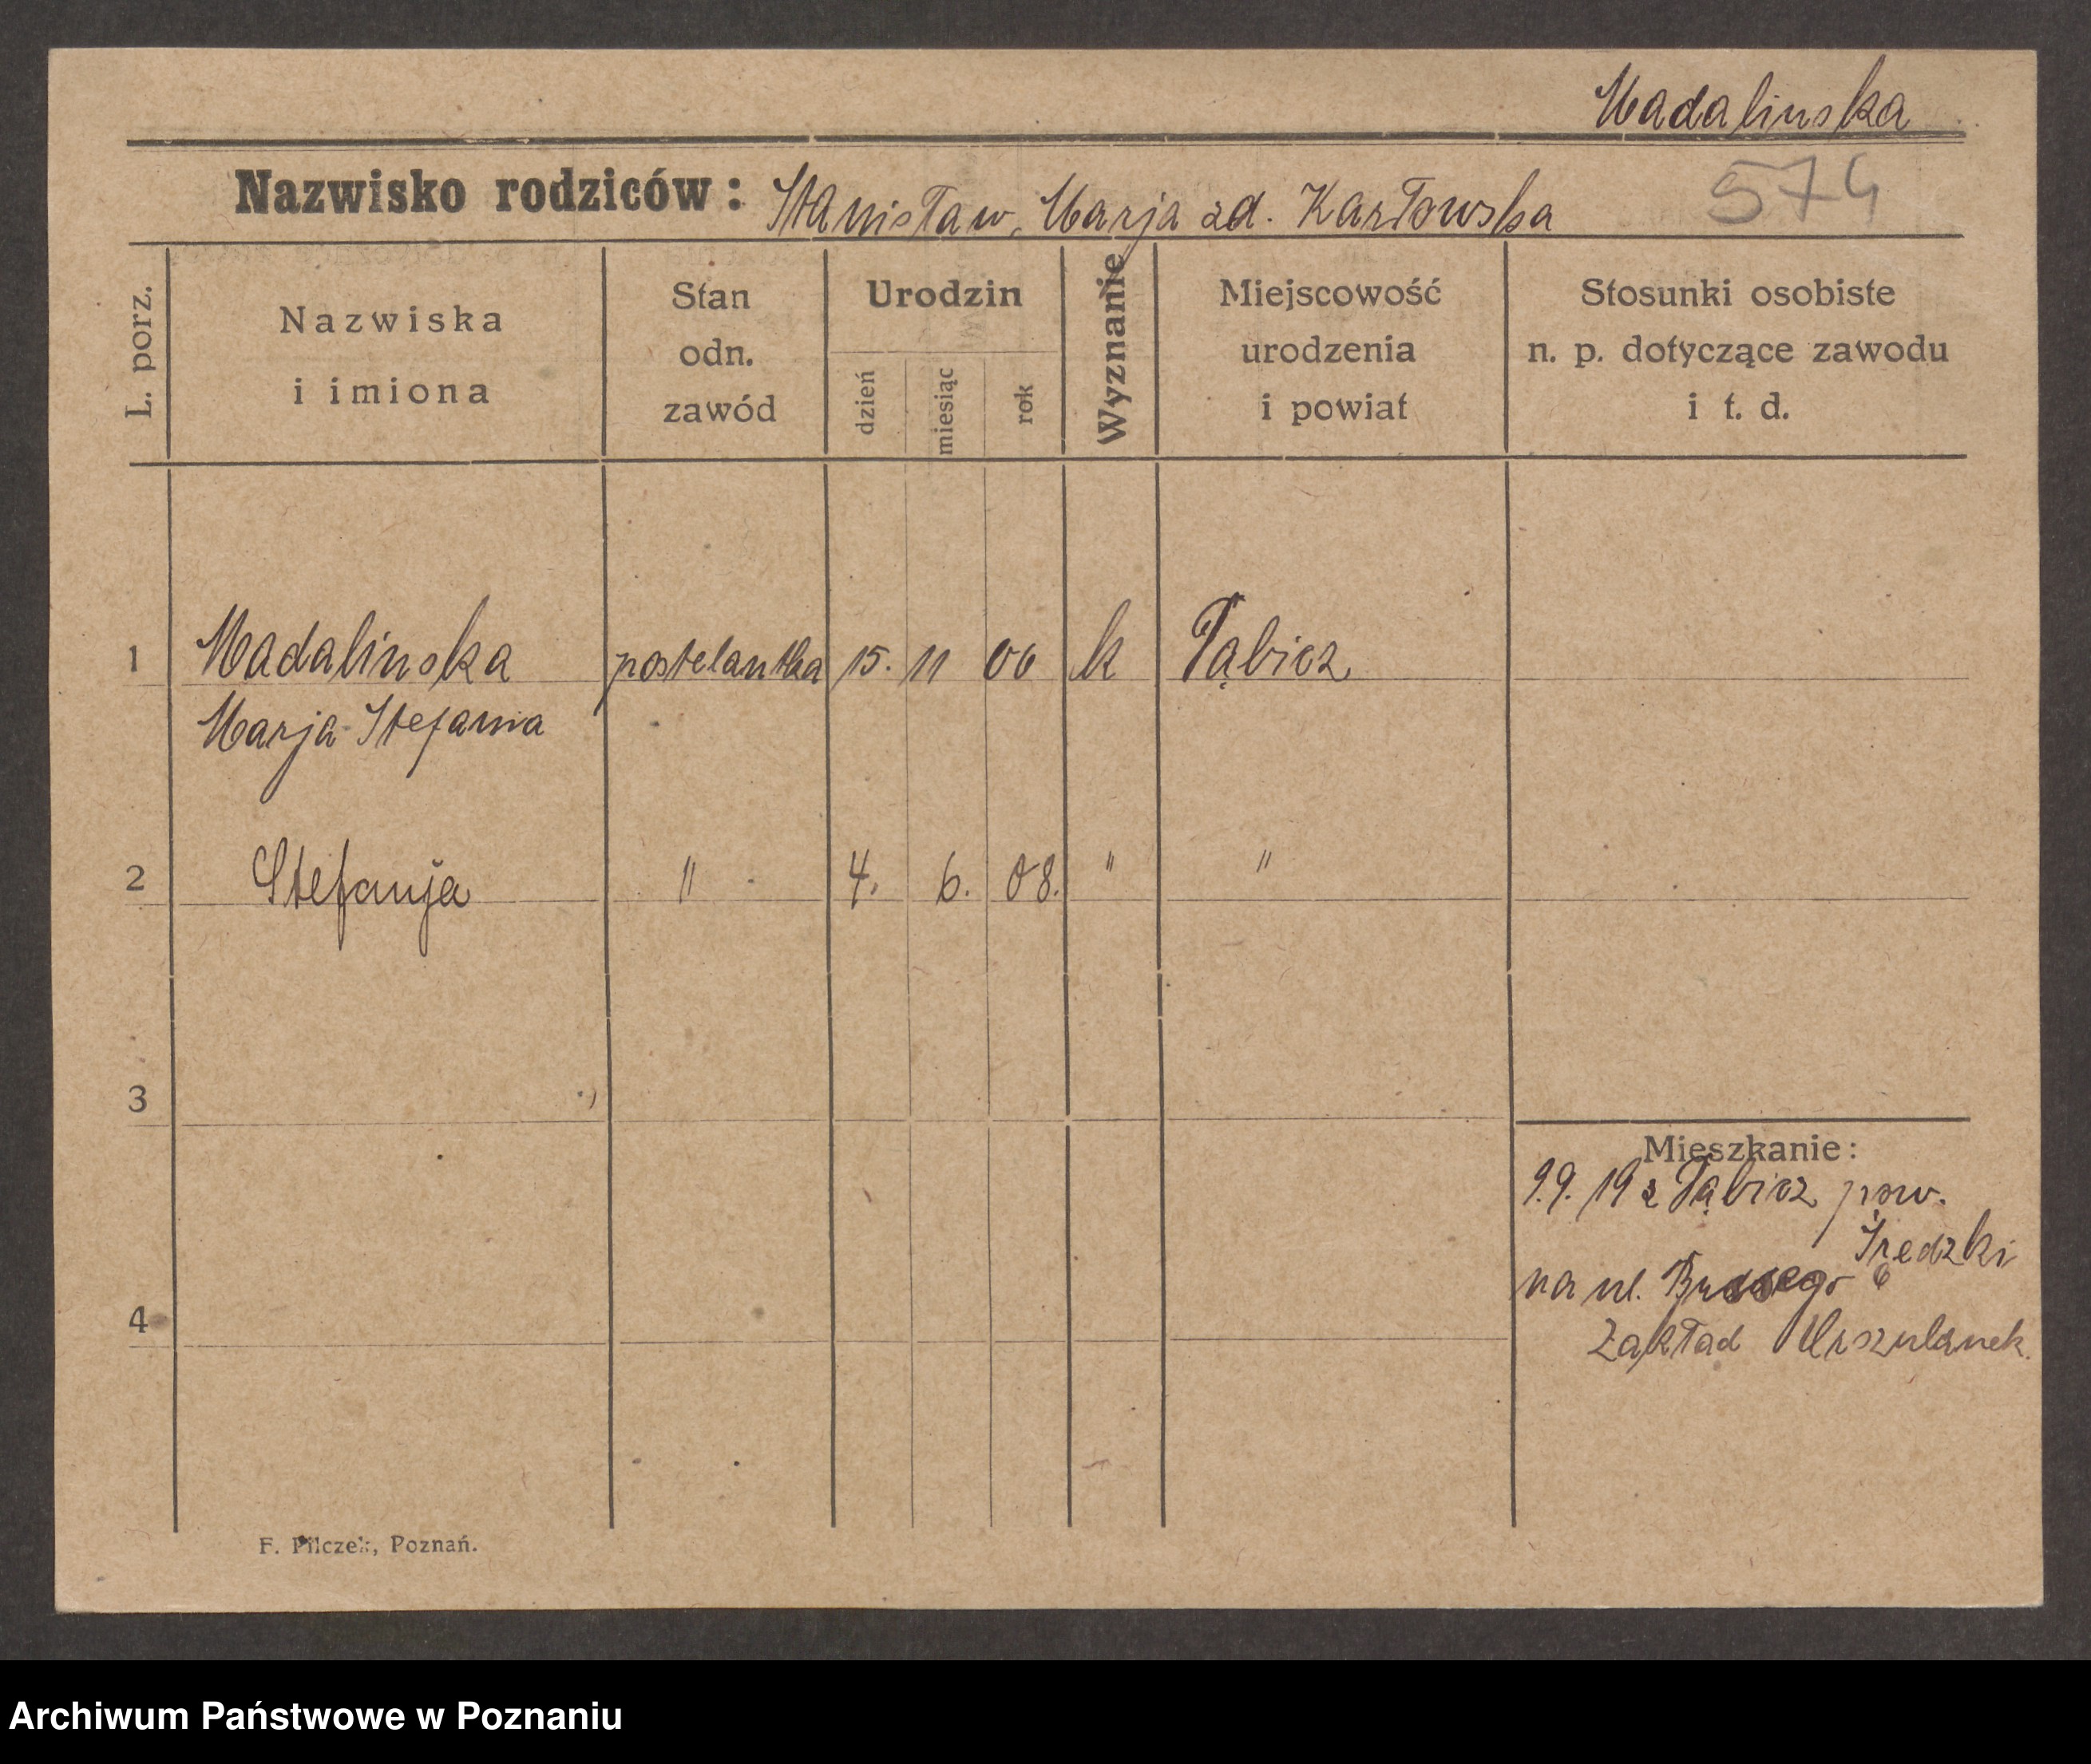 Madalinska
Nazwisko rodziców: Stanisław, Marja zd. Karłowska
574
L. porz.
Nazwiska
i imiona
Stan
odn.
zawód
Urodzin
dzień
miesiąc
rok
Wyznanie
Miejscowość
urodzenia
i powiat
Stosunki osobiste
n. p. dotyczące zawodu
i t. d.
1 Madalinska postelantka 15. 11 06 k Łąbicz
Marja Stefania
2 Stefanja " 4. 6. 08. " "
3
Mieszkanie:
9.9.19 z Łąbicz pow.
Średzki
na ul. 6
4
Zakład Urszulanek.
F. Pilczek, Poznań.
Archiwum Państwowe w Poznaniu